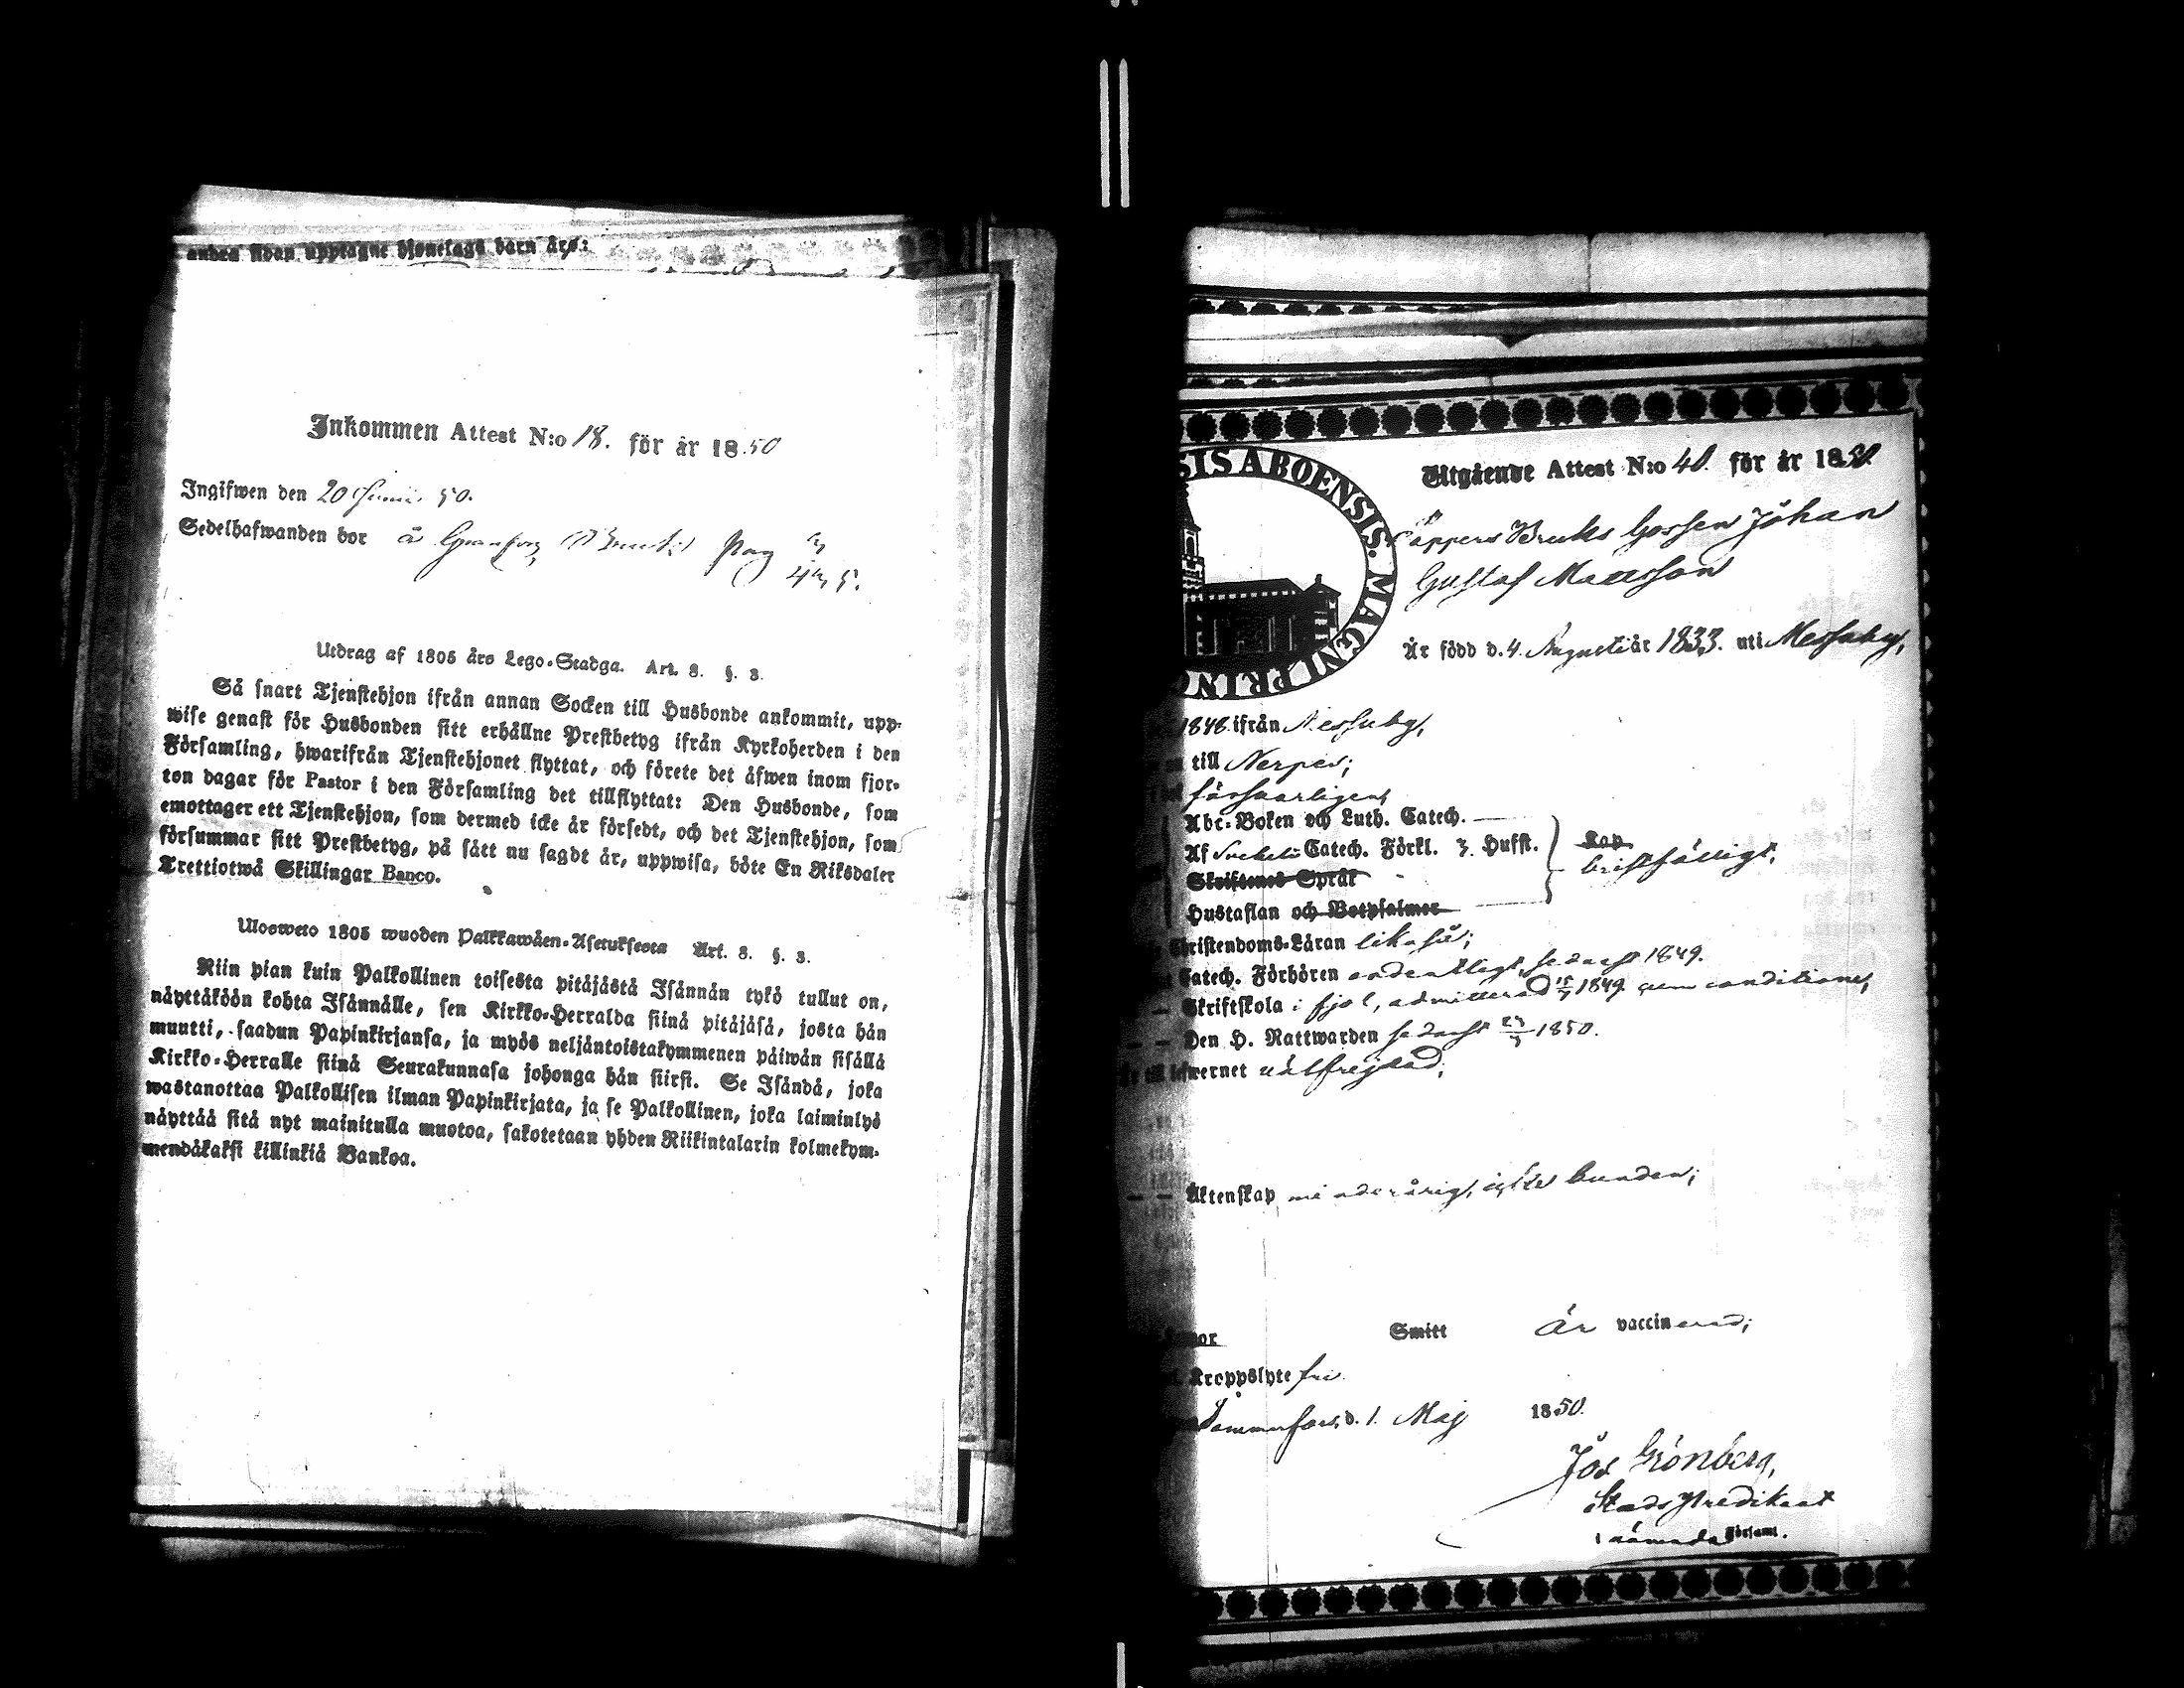 andra sidan upptagne hjonelags barn äro:
Inkommen Attest N:o 18. för år 18.50
Ingifwen den 20 Junii 50.
Sedelhafwanden bor å
pag
Utdrag af 1805 års Lego-Stadga. Art. 8. §. 3.
Så snart Tjenstehjon ifrån annan Socken till Husbonde ankommit, upp-
wise genast för Husbonden sitt erhållne Prestbetyg ifrån Kyrkoherden i den
Församling, hwarifrån Tjenstehjonet flyttat, och förete det äfwen inom fjor-
ton dagar för Pastor i den Församling det tillflyttat: Den Husbonde, som
emottager ett Tjenstehjon, som dermed icke är försedt, och det Tjenstehjon, som
försummar sitt Prestbetyg, på sätt nu sagdt är, uppwisa, böte En Riksdaler
Trettiotwå Skillingar Banco.
Ulosweto 1805 wuoden Palkkawäen-Asetuksesta Art. 8. §. 3.
Niin pian kuin Palkollinen toisesta pitäjästä Isännän tykö tullut on,
näyttäköön kohta Isännälle, sen Kirkko-Herralda siinä pitäjäsä, josta hän
muutti, saadun Papinkirjansa, ja myös neljäntoistakymmenen päiwän sisällä
Kirkko-Herralle siinä Seurakunnasa johonga hän siirsi. Se Isändä, joka
wastanottaa Palkollisen ilman Papinkirjata, ja se Palkollinen, joka laiminlyö
näyttää sitä nyt mainitulla muotoa, sakotetaan yhden Riikintalarin kolmekym-
mendäkaksi killinkiä Bankoa.
SIS ABOENSIS. MAGNI PRINC
Utgående Attest N:o 40. för år 1850.
Pappers Bruks Gossen Johan
Gustaf Mattsson
Är född d. 4. Augusti år 1833. uti Messuby,
1848. ifrån Messuby,
till Nerpes;
försvarligen,
Abc-Boken och Luth. Catech.
Af Svebelii Catech. Förkl. 3. Hufst.
bristfälligt;
Skriftenes Språk
Hustaflan och Botpsalmer
Christendoms-Läran likaså;
Catech. Förhören ordentligt, sednast 1849.
Skriftskola i fjol, admitterad 15/7 1849. cum conditione,
Den H. Nattwarden sednast 1850.
till lefwernet välfrejdad;
Äktenskap minderårig, icke bunden;
Smitt Är vaccinerad;
Kroppslyte fri.
Tammerfors, d. 1. Maj 1850.
Jos Grönberg,
Stads Predikant
i nämnda Församl.